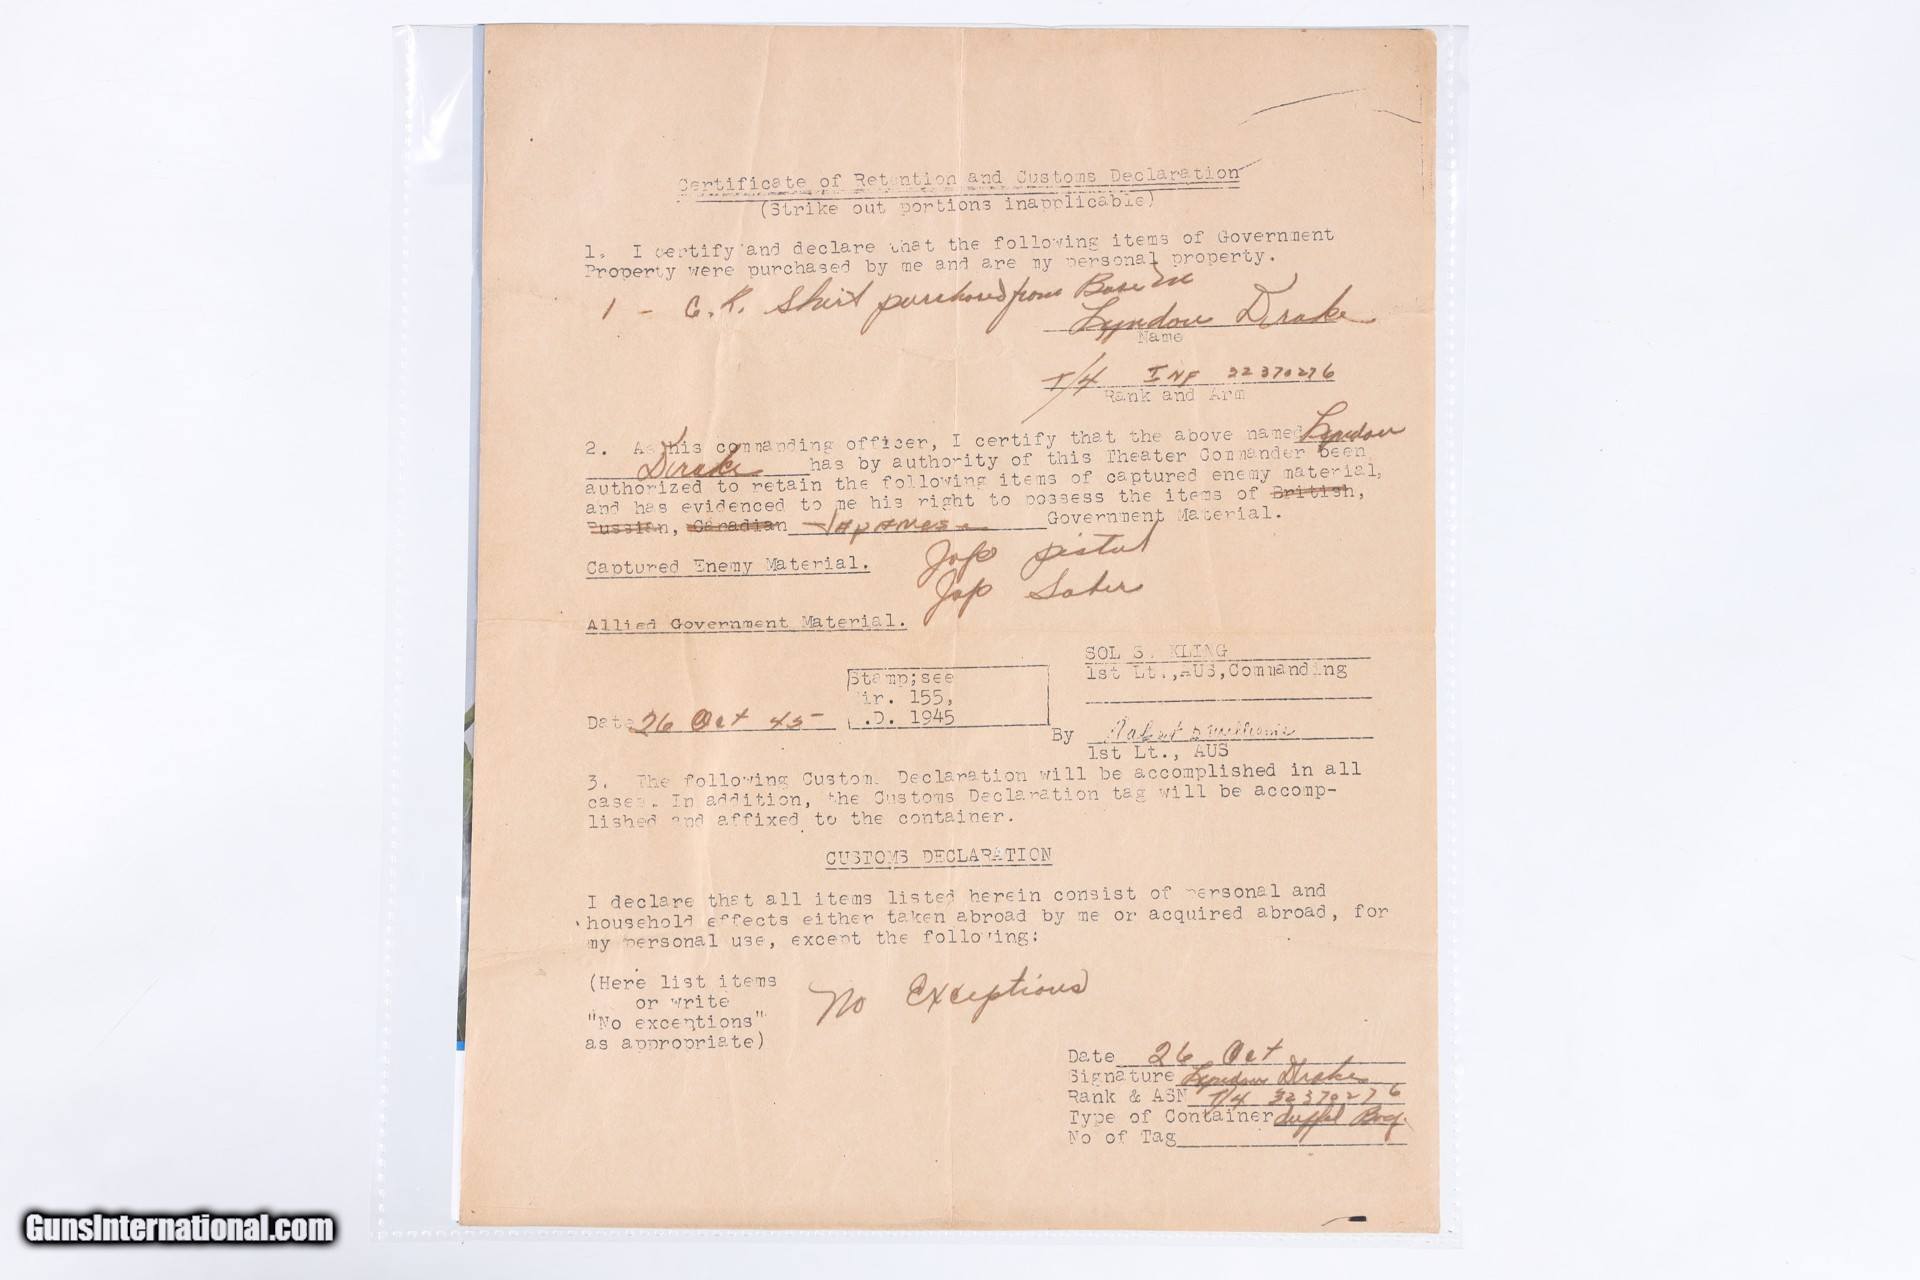 Certificate of Retention and Customs Declaration
(Strike out portions inapplicable)
1. I certify and declare that the following items of Government
Property were purchased by me and are my personal property.
1 - Shirt purchased from Base
Lyndon Drake
Name
T/4 INF 32370276
Rank and Arm
2. As his commanding officer, I certify that the above named Lyndon
Drake has by authority of this Theater Commander been
authorized to retain the following items of captured enemy material,
and has evidenced to me his right to possess the items of British,
Russian, Canadian Japanese Government Material.
Captured Enemy Material. Jap pistol
Jap Saber
Allied Government Material.
SOL S. KLING
1st Lt., AUS, Commanding
Stamp; see
Cir. 155,
W.D. 1945
Date 26 Oct 45
By Williams
1st Lt., AUS
3. The following Customs Declaration will be accomplished in all
cases. In addition, the Customs Declaration tag will be accomp-
lished and affixed to the container.
CUSTOMS DECLARATION
I declare that all items listed herein consist of personal and
household effects either taken abroad by me or acquired abroad, for
my personal use, except the following:
(Here list items
or write
"No exceptions"
as appropriate)
No Exceptions
Date 26 Oct
Signature Lyndon Drake
Rank & ASN T/4 32370276
Type of Container Duffel Bag.
No of Tag
GunsInternational.com